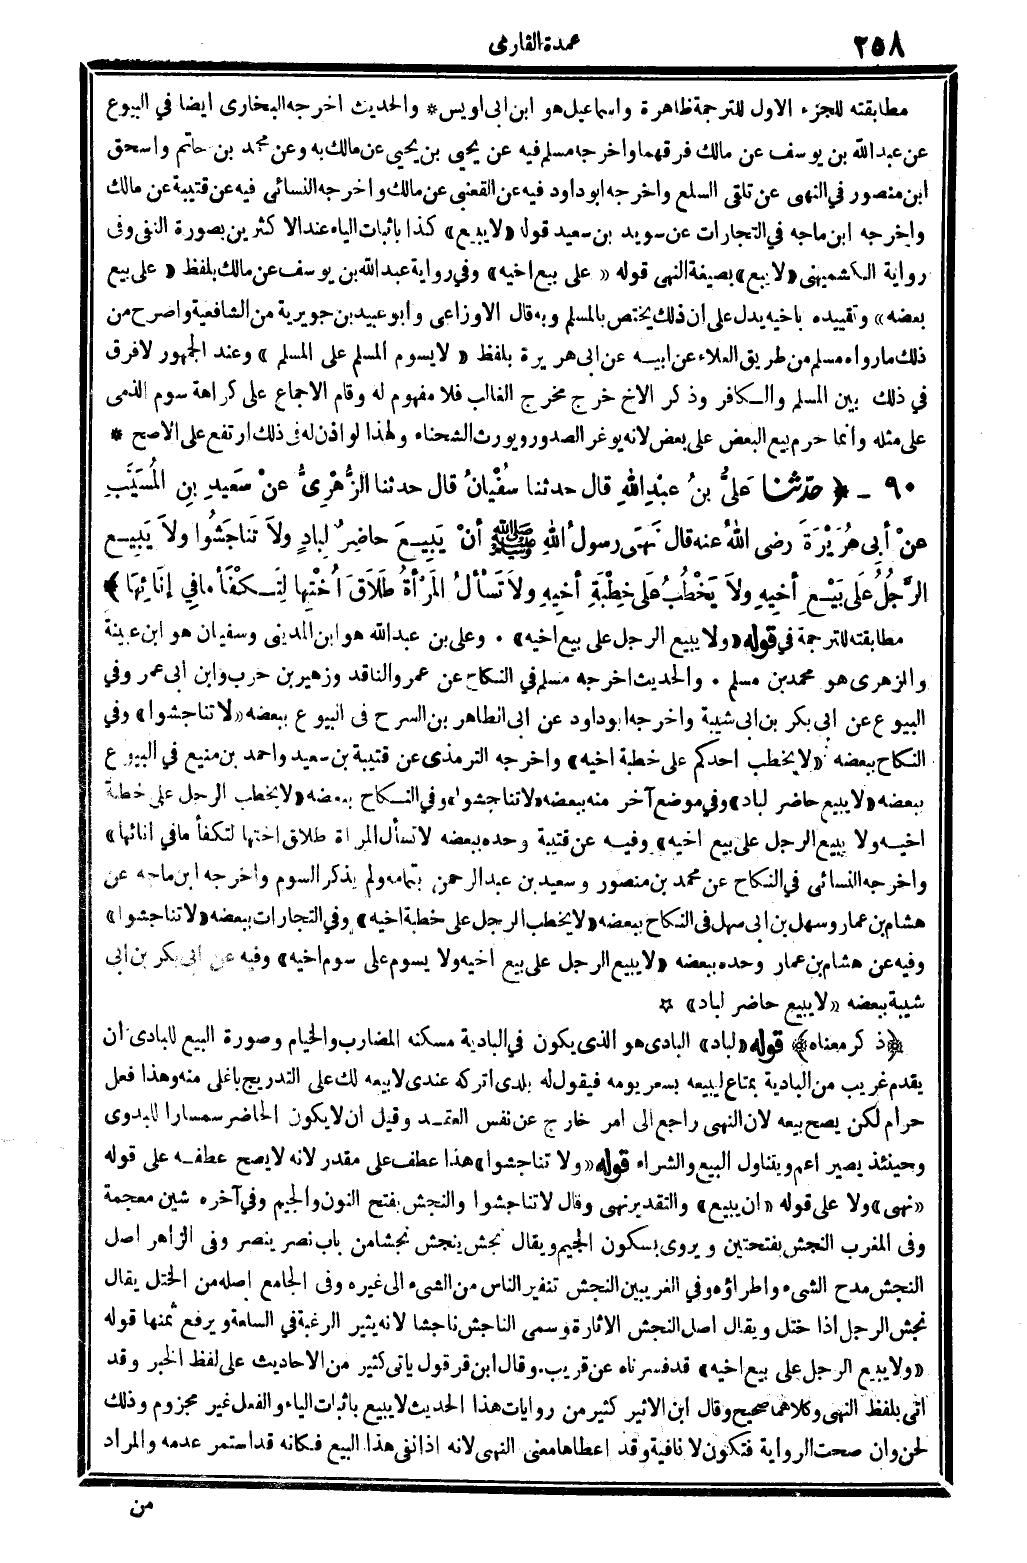 ٢٥٨
عمدة القارى
مطابقته للجزء الاول للترجمة ظاهرة واسماعيل هو ابن ابى اويس * والحديث اخرجه البخارى ايضا في البيوع
عن عبد الله بن يوسف عن مالك فرقهما واخرجه مسلم فيه عن يحيى بن يحيى عن مالك به وعن محمد بن حاتم واسحق
ابن منصور في النهى عن تلقى السلع واخرجه ابو داود فيه عن القعنبى عن مالك واخرجه النسائى فيه عن قتيبة عن مالك
واخرجه ابن ماجه في التجارات عن سويد بن سعيد قوله «لا يبيع» كذا باثبات الياء عند الاكثرين بصورة النفى وفى
رواية الكشميهنى «لا يبع» بصيغة النهى قوله « على بيع اخيه» وفي رواية عبد الله بن يوسف عن مالك بلفظ « على بيع
بعضه» وتقييده باخيه يدل على ان ذلك يختص بالمسلم وبه قال الاوزاعى وابو عبيد بن جويرية من الشافعية واصرح من
ذلك ما رواه مسلم من طريق العلاء عن ابيه عن ابى هريرة بلفظ « لا يسوم المسلم على المسلم » وعند الجمهور لا فرق
في ذلك بين المسلم والكافر وذكر الاخ خرج مخرج الغالب فلا مفهوم له وقام الاجماع على كراهة سوم الذمى
على مثله وانما حرم بيع البعض على بعض لانه يوغر الصدور ويورث الشحناء ولهذا لو اذن له في ذلك ارتفع على الاصح *
٩٠ - ﴿ حَدَّثَنَا عَلِيُّ بنُ عبْدِ اللهِ قال حدثنا سُفْيانُ قال حدثنا الزُّهْرِىُّ عنْ سَعِيدِ بنِ المُسَيَّبِ
عنْ أبِي هُرَيْرَةَ رضى اللهُ عنه قال نَهَى رسولُ اللهِ ﷺ أنْ يَبِيعَ حاضِرٌ لِبادٍ ولاَ تَناجَشُوا ولاَ يَبِيعُ
الرَّجُلُ عَلى بَيْعِ أخِيهِ ولاَ يَخْطُبُ عَلَى خِطْبَةِ أخِيهِ ولاَ تَسْألُ المَرْأةُ طَلاَقَ أُخْتِها لِتَكْفَأ ما في إنائِها ﴾
مطابقته للترجمة في قوله «ولا يبيع الرجل على بيع اخيه» . وعلى بن عبد الله هو ابن المدينى وسفيان هو ابن عيينة
والزهرى هو محمد بن مسلم . والحديث اخرجه مسلم في النكاح عن عمرو الناقد وزهير بن حرب وابن ابى عمر وفي
البيوع عن ابى بكر بن ابى شيبة واخرجه ابو داود عن ابى الطاهر بن السرح فى البيوع ببعضه «لا تناجشوا» وفي
النكاح ببعضه «لا يخطب احدكم على خطبة اخيه» واخرجه الترمذى عن قتيبة بن سعيد واحمد بن منيع في البيوع
ببعضه «لا يبيع حاضر لباد» وفي موضع آخر منه ببعضه «لا تناجشوا» وفي النكاح ببعضه «لا يخطب الرجل على خطبة
اخيه ولا يبيع الرجل على بيع اخيه» وفيه عن قتيبة وحده ببعضه لا تسأل المراة طلاق اختها لتكفأ ما في انائها»
واخرجه النسائى في النكاح عن محمد بن منصور وسعيد بن عبد الرحمن بتمامه ولم يذكر السوم واخرجه ابن ماجه عن
هشام بن عمار وسهل بن ابى سهل فى النكاح ببعضه «لا يخطب الرجل على خطبة اخيه» وفي التجارات ببعضه «لا تناجشوا»
وفيه عن هشام بن عمار وحده ببعضه «لا يبيع الرجل على بيع اخيه ولا يسوم على سوم اخيه» وفيه عن ابى بكر بن ابى
شيبة ببعضه «لا يبيع حاضر لباد» ☆
﴿ذكر معناه﴾ قوله «لباد» البادى هو الذى يكون في البادية مسكنه المضارب والخيام وصورة البيع للبادى ان
يقدم غريب من البادية بمتاع ليبيعه بسعر يومه فيقول له بلدى اتركه عندى لابيعه لك على التدريج باغلى منه وهذا فعل
حرام لكن يصح بيعه لان النهى راجع الى امر خارج عن نفس العقد وقيل ان لا يكون الحاضر سمسارا للبدوى
وحينئذ يصير اعم ويتناول البيع والشراء قوله «ولا تناجشوا» هذا عطف على مقدر لانه لا يصح عطفه على قوله
«نهى» ولا على قوله «ان يبيع» والتقدير نهى وقال لا تناجشوا والنجش بفتح النون والجيم وفي آخره شين معجمة
وفى المغرب النجش بفتحتين ويروى بسكون الجيم ويقال نجش ينجش نجشا من باب نصر ينصر وفى الزاهر اصل
النجش مدح الشىء واطراؤه وفي الغريبين النجش تنفير الناس من الشىء الى غيره وفى الجامع اصله من الختل يقال
نجش الرجل اذا ختل ويقال اصل النجش الاثارة وسمى الناجش ناجشا لانه يثير الرغبة في السلعة ويرفع ثمنها قوله
«ولا يبيع الرجل على بيع اخيه» قد فسرناه عن قريب . وقال ابن قرقول ياتى كثير من الاحاديث على لفظ الخبر وقد
اتى بلفظ النهى وكلاهما صحيح وقال ابن الاثير كثير من روايات هذا الحديث لا يبيع باثبات الياء والفعل غير مجزوم وذلك
لحن وان صحت الرواية فتكون لا نافية وقد اعطاها معنى النهى لانه اذا نفى هذا البيع فكانه قد استمر عدمه والمراد
من